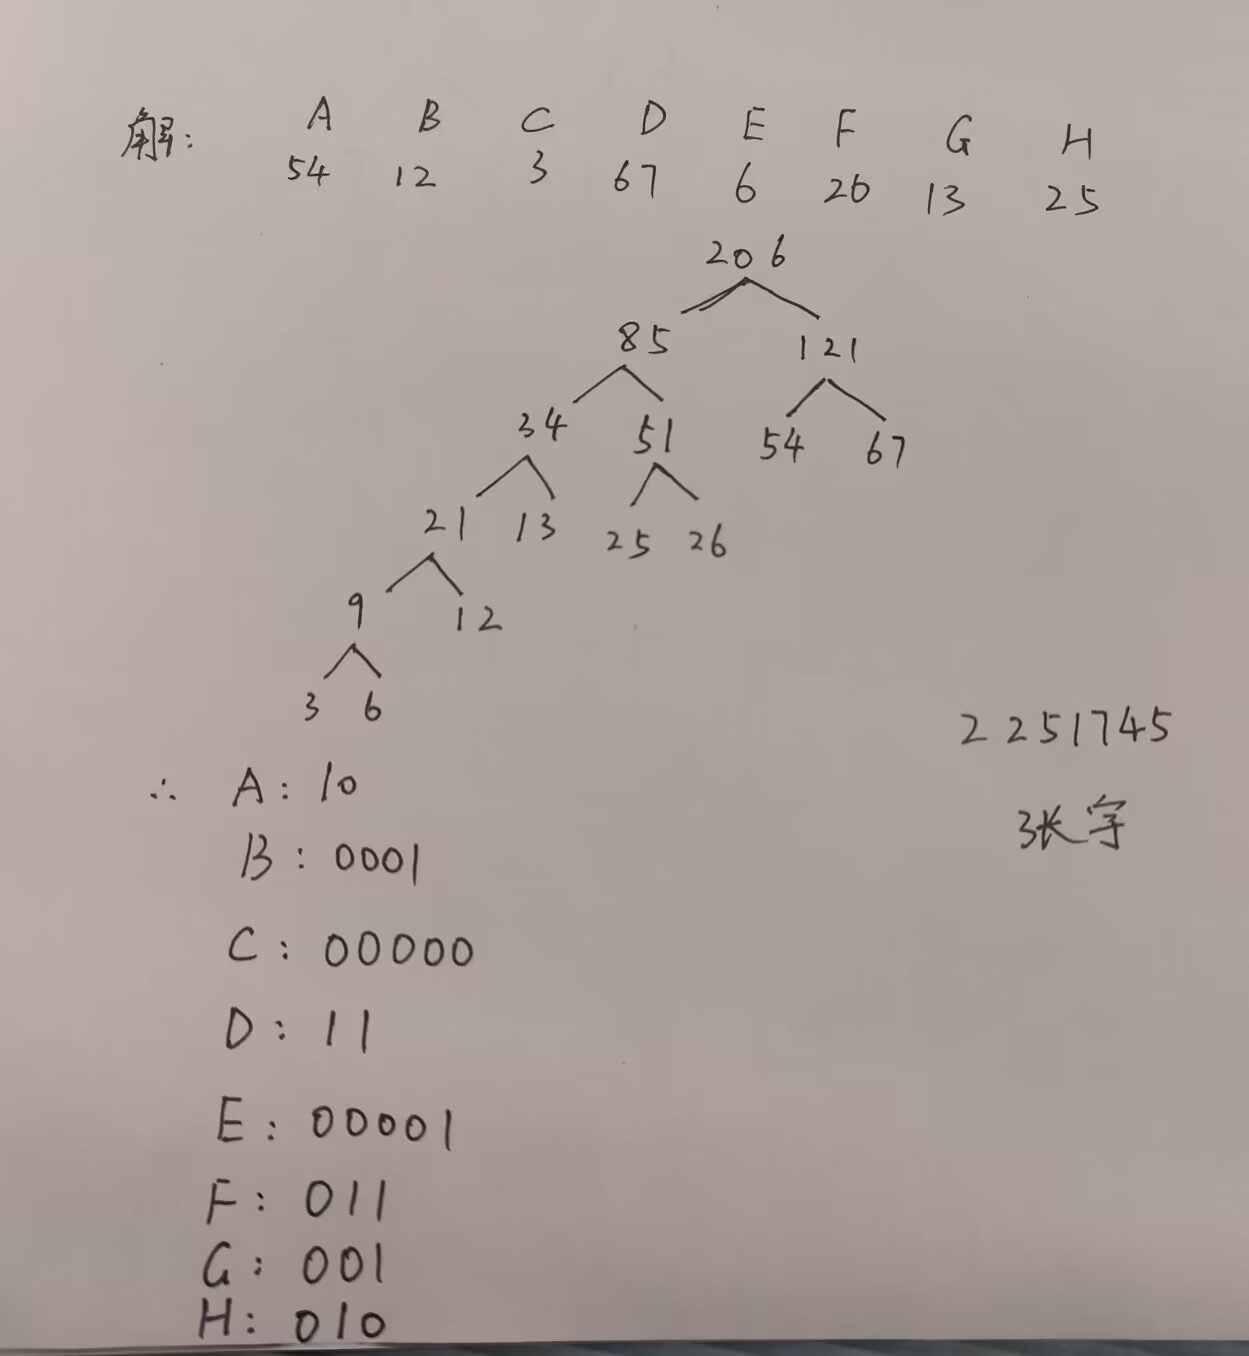 解: A B C D E F G H
54 12 3 67 6 26 13 25
206
85 121
34 51 54 67
21 13 25 26
9 12
3 6
2251745
∴ A: 10
B: 0001
C: 00000
D: 11
E: 00001
F: 011
G: 001
H: 010